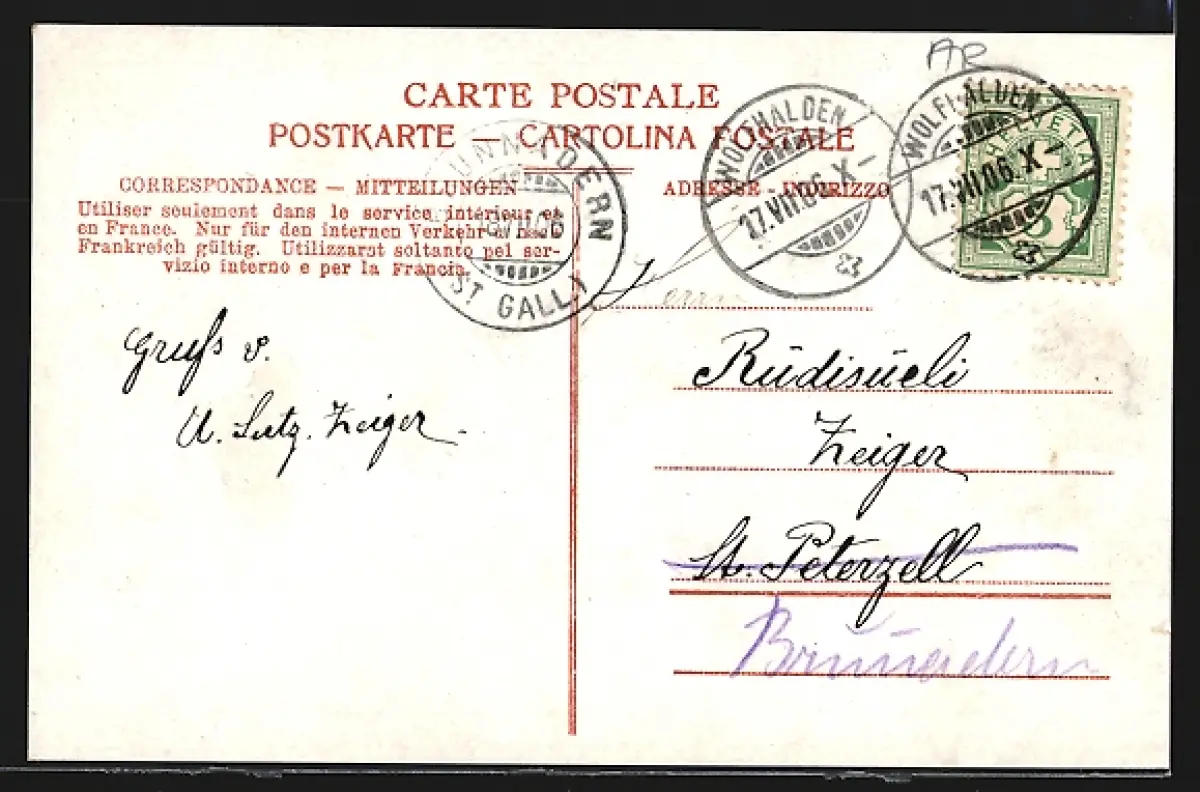 AR
CARTE POSTALE
POSTKARTE — CARTOLINA POSTALE
CORRESPONDANCE — MITTEILUNGEN
Utiliser seulement dans le service intérieur et
en France. Nur für den internen Verkehr u. nach
Frankreich gültig. Utilizzarsi soltanto pel ser-
vizio interno e per la Francia.
BRUNNADERN
(ST GALL)
ADRESSE - INDIRIZZO
WOLFHALDEN
17.VII.06. X-
WOLFHALDEN
17.VII.06. X-
HELVETIA
5
Gruss v.
U. Lutz. Zeiger.
Herrn
Rüdisüeli
Zeiger
St. Peterzell
Brunnadern